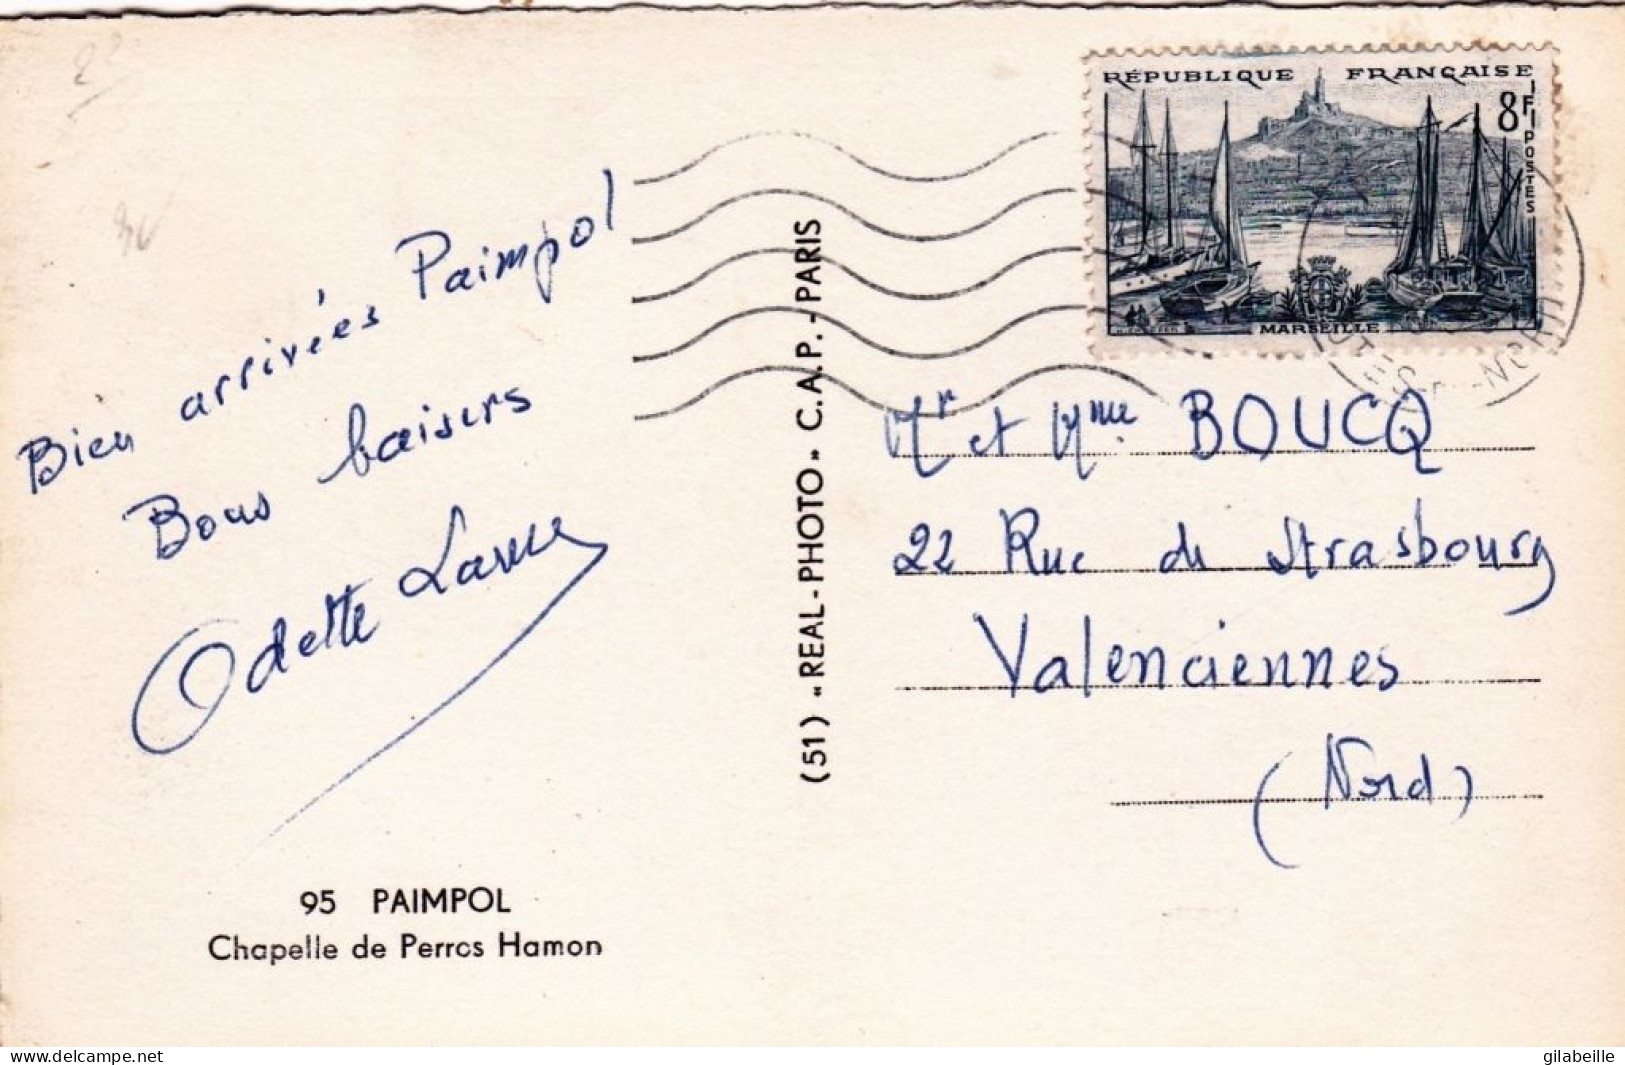 22
Bien arrivées Paimpol
Bons baisers
Odette
95 PAIMPOL
Chapelle de Perros Hamon
(51) « REAL-PHOTO » C.A.P. - PARIS
RÉPUBLIQUE FRANÇAISE
8F
POSTES
MARSEILLE
NORD
Mr et Mme BOUCQ
22 Rue de Strasbourg
Valenciennes
(Nord)
https://www.delcampe.net
gilabeille